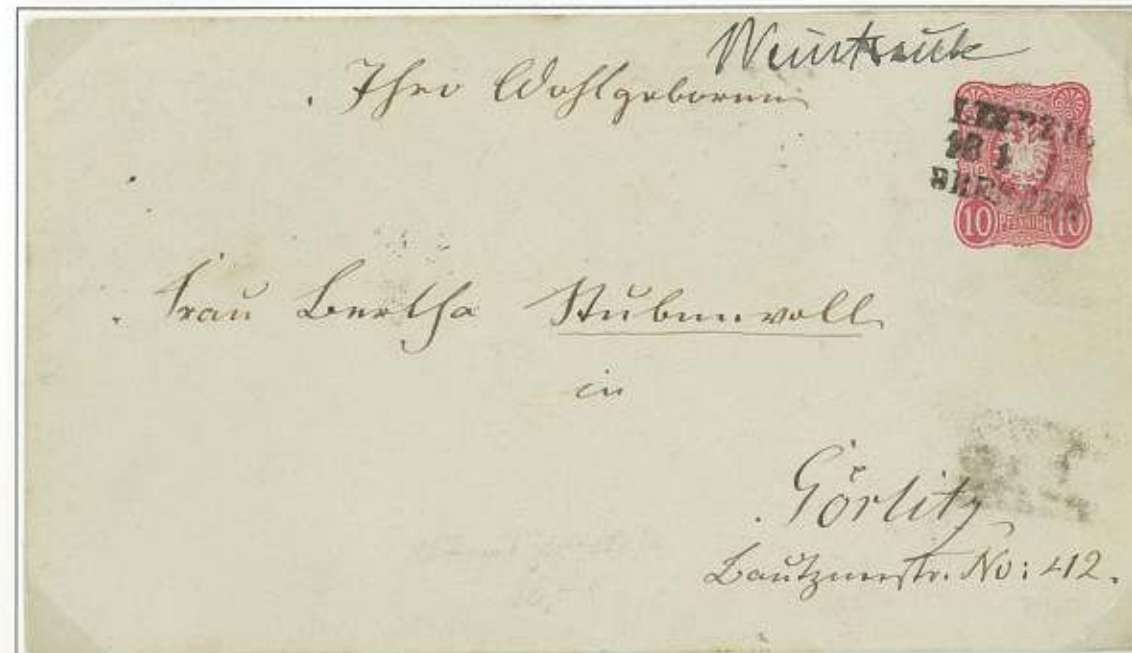 Weintraube
Ihro Wohlgeboren
LEIPZIG
18 1
DRESDEN
10 PFENNIG 10
Frau Bertha Stubenvoll
in
Görlitz
Bautznerstr. No: 42.